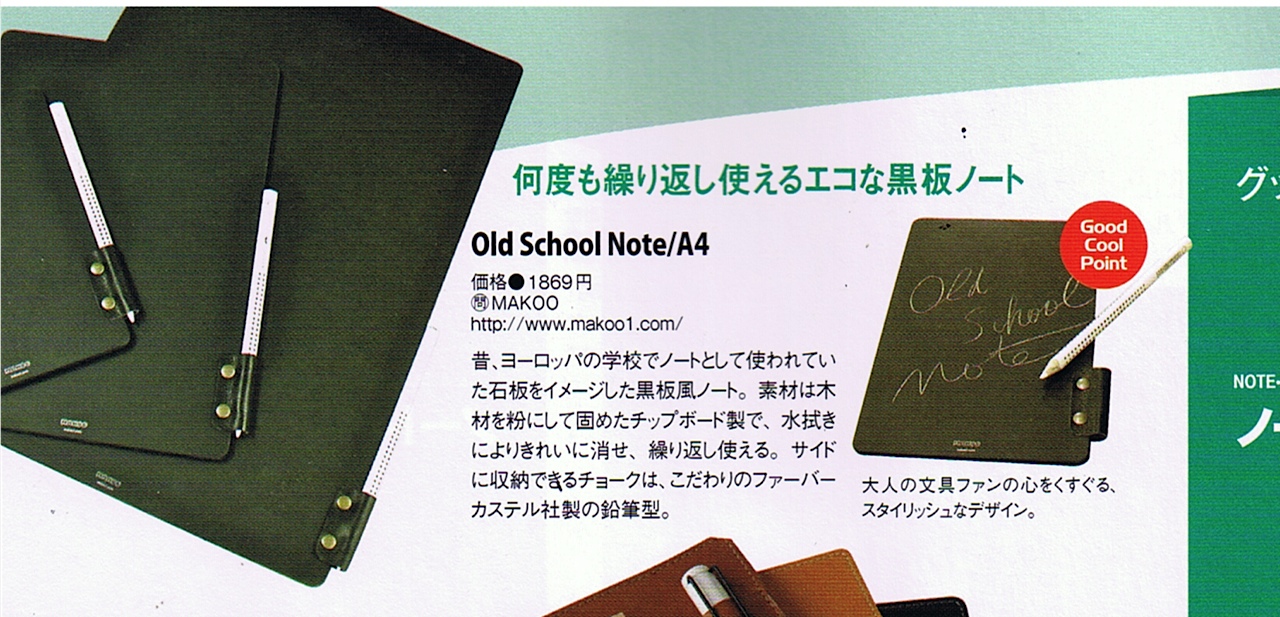 何度も繰り返し使えるエコな黒板ノート
Old School Note/A4
価格●1869円
㉄MAKOO
http://www.makoo1.com/
昔、ヨーロッパの学校でノートとして使われてい
た石板をイメージした黒板風ノート。素材は木
材を粉にして固めたチップボード製で、水拭き
によりきれいに消せ、繰り返し使える。サイド
に収納できるチョークは、こだわりのファーバー
カステル社製の鉛筆型。
Good
Cool
Point
Old
School
Note
大人の文具ファンの心をくすぐる、
スタイリッシュなデザイン。
グッ
NOTE-
ノー